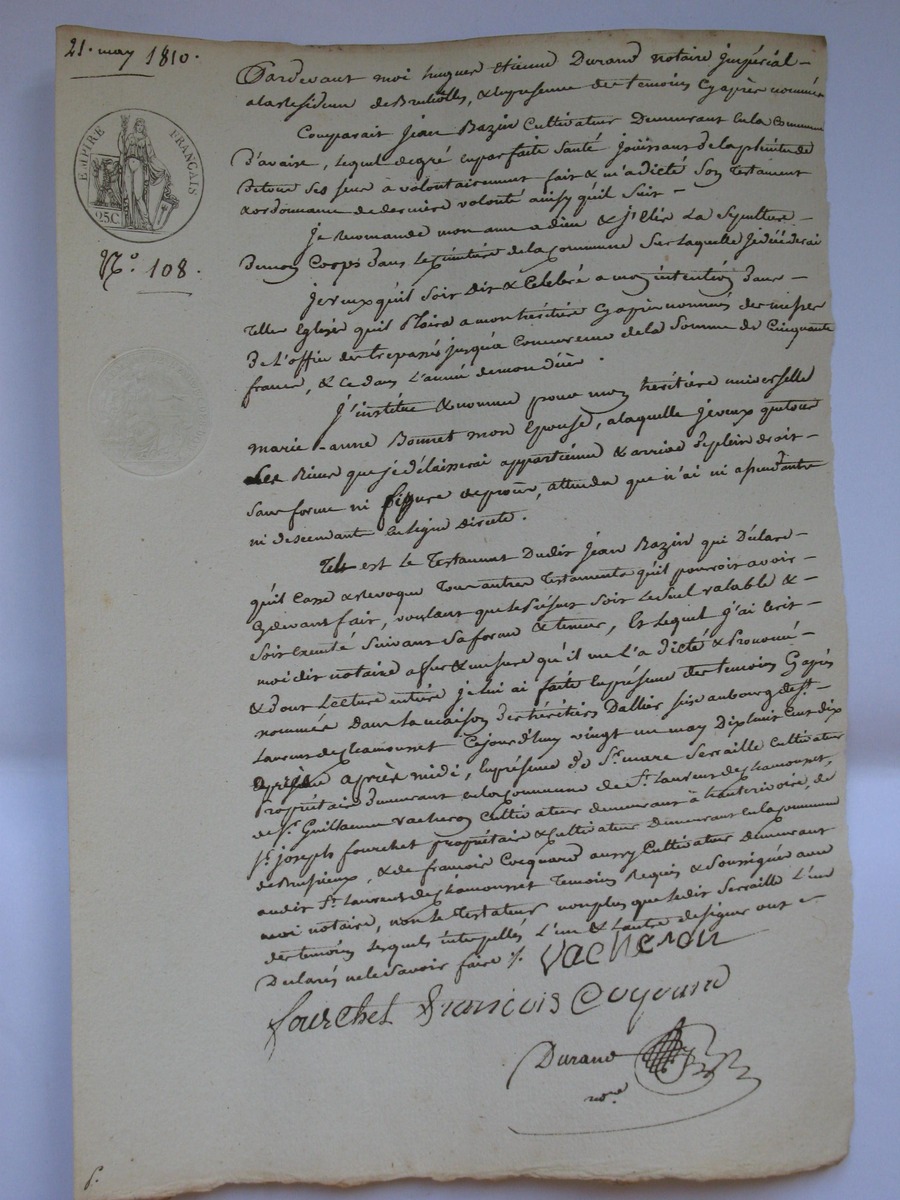 21. may 1810.
EMPIRE FRANÇAIS
25.C
N.o 108.
Pardevant moi hugues Etienne Durand notaire Impérial
a la residence de Brullolles, & en presence des temoins Cy après nommés
Comparait Jean Bazin Cultivateur Demeurant en la Commune
D'avaise, lequel de gré en parfaite santé jouissant de la plénitude
De tous ses sens a volontairement fait & m'a dicté Son testament
& ordonnance de derniere volonté ainsy qu'il suit
Je recommande mon ame a dieu & j'elis La Sépulture
De mon Corps dans le cimétière de la Commune Sur laquelle je décéderai
Je veux qu'il soit Dit & Celébré a mon intention dans
telle Eglise qu'il Plaira a mon héritière Cy après nommée des messes
De L'office des trepassés jusqu'a Concurrence de la Somme de Cinquante
francs, & ce dans L'année de mon décès.
J'institue & nomme pour mon héritière universelle
marie-anne Bonnet mon Epouse, a laquelle je veux que tous
Les Biens que je délaisserai appartienne & arrive de plein droit
sans forme ni figure de procès, attendu que n'ai ni ascendants
ni descendants en ligne directe.
Tell est le Testament Dudit Jean Bazin qui Déclare
qu'il Casse & revoque Tous autres Testaments qu'il pourroit avoir
Cy devant fait, voulant que le Présent soit le seul valable &
soit executé suivant sa forme & teneur, Et lequel j'ai écrit
moi dit notaire a fur & mesure qu'il me L'a dicté & Prononcé
& dont Lecture entière je lui ai faite En présence des temoins Cy après
nommés Dans la maison des héritiers Dallier sise au bourg de St.
Laurent de Chamousset Cejourd'huy vingt un may Dix huit Cent dix
après midi, En présence de Sr. marc Serraille Cultivateur
Propriétaire Demeurant en la Commune de St. Laurent de Chamousset,
de Sr. Guillaume Vacheron Cultivateur demeurant à hauterivoire, de
Sr. joseph fourchet propriétaire & Cultivateur Demeurant en la Commune
de Brussieux, & de francois Cocquard aussy Cultivateur Demeurant
audit St. Laurent de Chamousset Temoins Requis & Soussignés avec
moi notaire, non le Testateur non plus que ledit Serraille L'un
des temoins lesquels interpellés L'un & L'autre de signer ont
Declarés ne le savoir faire ./.
Vacheron
fourchet françois
Durand
nore